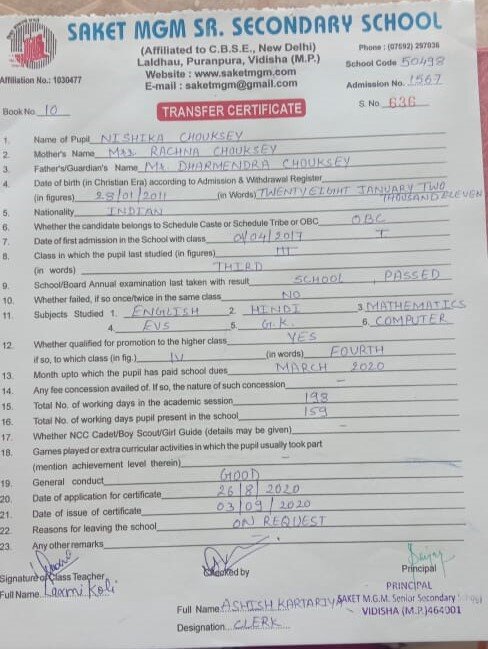 SAKET MGM SR. SECONDARY SCHOOL
(Affiliated to C.B.S.E., New Delhi)
Phone : (07592) 297036
Laldhau, Puranpura, Vidisha (M.P.)
School Code 50498
Website : www.saketmgm.com
Affiliation No.: 1030477
E-mail : saketmgm@gmail.com
Admission No. 1567
Book No. 10
TRANSFER CERTIFICATE
S. No. 636
1. Name of Pupil NISHIKA CHOUKSEY
2. Mother's Name Mrs. RACHNA CHOUKSEY
3. Father's/Guardian's Name Mr. DHARMENDRA CHOUKSEY
4. Date of birth (in Christian Era) according to Admission & Withdrawal Register
(in figures) 28/01/2011 (in Words) TWENTY EIGHT JANUARY TWO THOUSAND ELEVEN
5. Nationality INDIAN
6. Whether the candidate belongs to Schedule Caste or Schedule Tribe or OBC OBC
7. Date of first admission in the School with class 01/04/2017 I
8. Class in which the pupil last studied (in figures) III
(in words) THIRD
9. School/Board Annual examination last taken with result SCHOOL, PASSED
10. Whether failed, if so once/twice in the same class NO
11. Subjects Studied 1. ENGLISH 2. HINDI 3. MATHEMATICS
4. EVS 5. G.K. 6. COMPUTER
12. Whether qualified for promotion to the higher class YES
if so, to which class (in fig.) IV (in words) FOURTH
13. Month upto which the pupil has paid school dues MARCH 2020
14. Any fee concession availed of. If so, the nature of such concession –
15. Total No. of working days in the academic session 198
16. Total No. of working days pupil present in the school 159
17. Whether NCC Cadet/Boy Scout/Girl Guide (details may be given) –
18. Games played or extra curricular activities in which the pupil usually took part
(mention achievement level therein) –
19. General conduct GOOD
20. Date of application for certificate 26/8/2020
21. Date of issue of certificate 03/09/2020
22. Reasons for leaving the school ON REQUEST
23. Any other remarks
Signature of Class Teacher
Checked by
Principal
Full Name: Laxmi Koli
PRINCIPAL
Full Name: ASHISH KARTARIYA
SAKET M.G.M. Senior Secondary
VIDISHA (M.P.)464001
Designation: CLERK